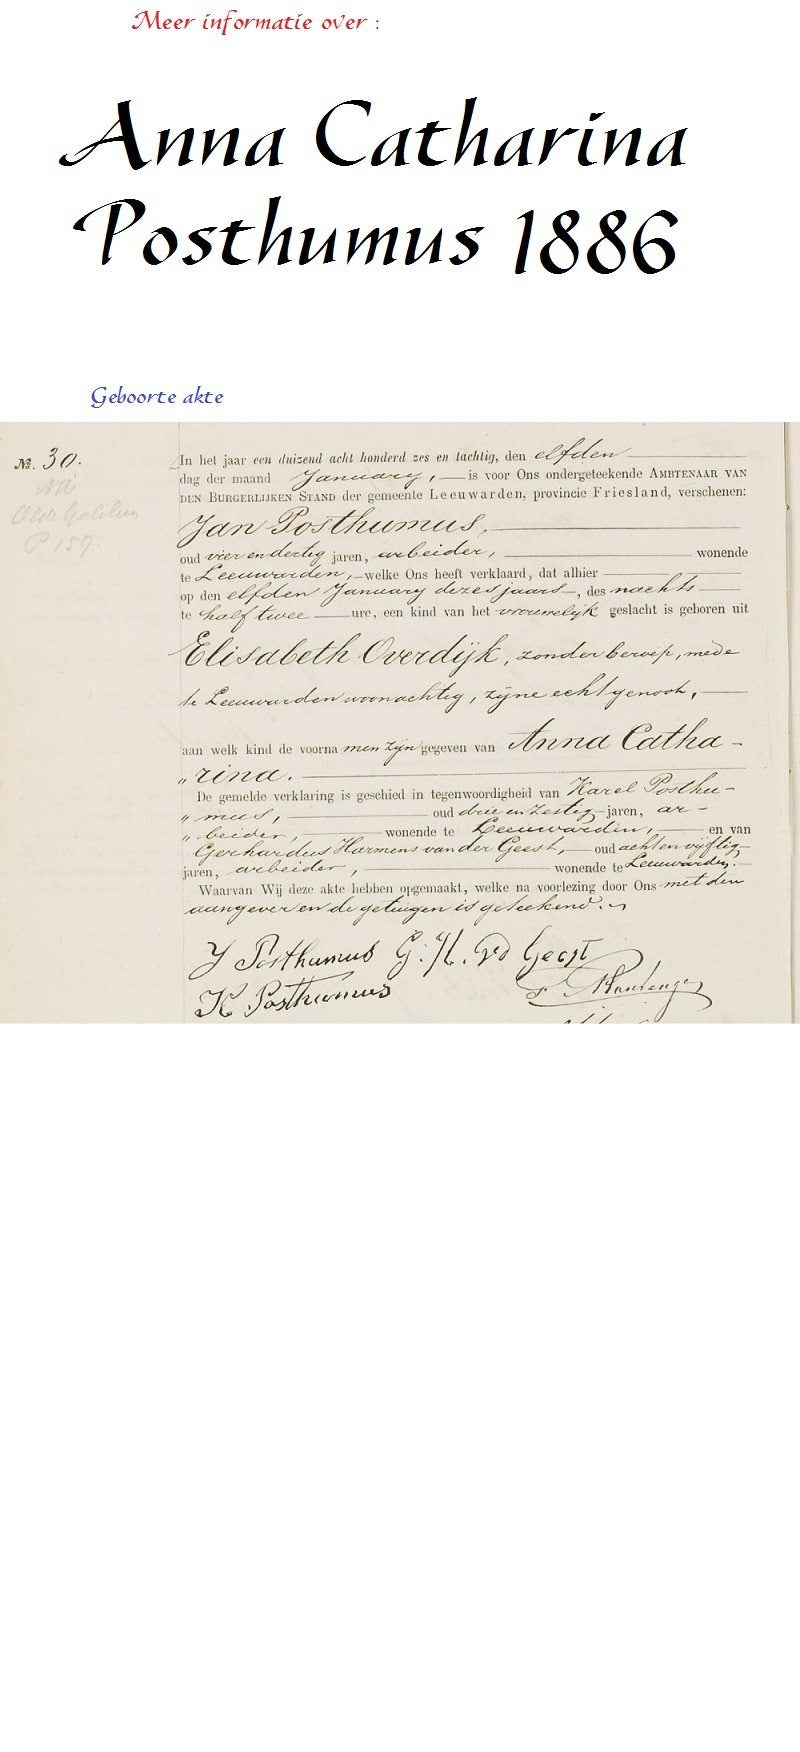 Meer informatie over :
Anna Catharina
Posthumus 1886
Geboorte akte
№. 30.
In het jaar een duizend acht honderd zes en tachtig, den elfden
dag der maand January, is voor Ons ondergeteekende AMBTENAAR VAN
DEN BURGERLIJKEN STAND der gemeente Leeuwarden, provincie Friesland, verschenen:
Jan Posthumus,
oud vier en dertig jaren, arbeider, wonende
te Leeuwarden, welke Ons heeft verklaard, dat alhier
op den elfden January dezes jaars, des nachts
te half twee ure, een kind van het vrouwelijk geslacht is geboren uit
Elisabeth Overdijk, zonder beroep, mede
te Leeuwarden woonachtig, zijne echtgenoot,
aan welk kind de voorna men zijn gegeven van Anna Catha-
„ rina.
De gemelde verklaring is geschied in tegenwoordigheid van Karel Posthu-
„ mus, oud drie en zestig jaren, ar-
„ beider, wonende te Leeuwarden, en van
Gerhardus Harmens van der Geest, oud acht en vijftig
jaren, arbeider, wonende te Leeuwarden.
Waarvan Wij deze akte hebben opgemaakt, welke na voorlezing door Ons met den
aangever en de getuigen is geteekend.
J Posthumus G. H. vd Geest
K Posthumus